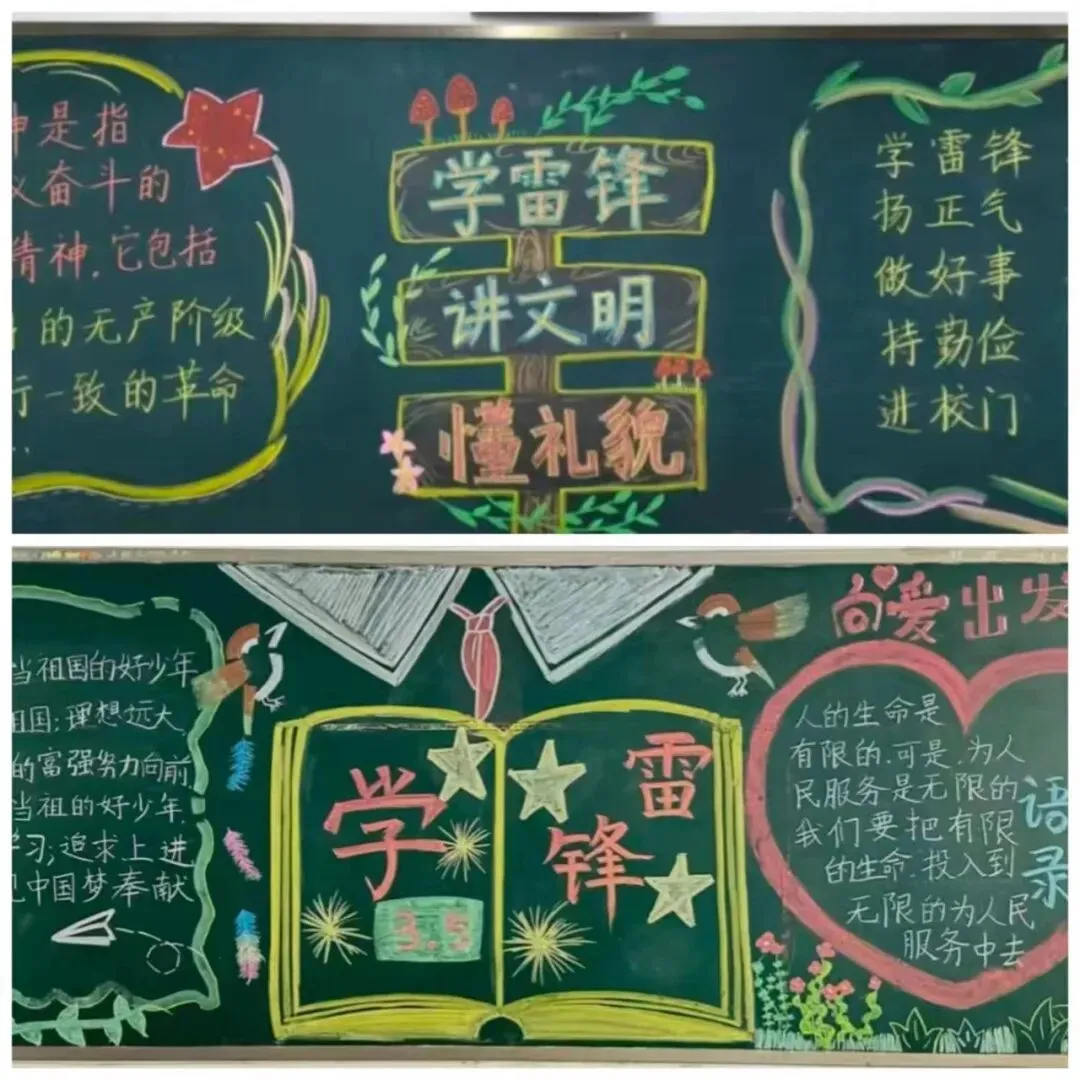 神是指
义奋斗的
精神,它包括
的无产阶级
行一致的革命
学雷锋
讲文明
懂礼貌
学雷锋
扬正气
做好事
持勤俭
进校门
当祖国的好少年
祖国;理想远大
的富强努力向前
当祖的好少年
学习;追求上进
中国梦奉献
学雷锋
3.5
向爱出发
人的生命是
有限的,可是,为人
民服务是无限的
我们要把有限
的生命,投入到
无限的为人民
服务中去
语录